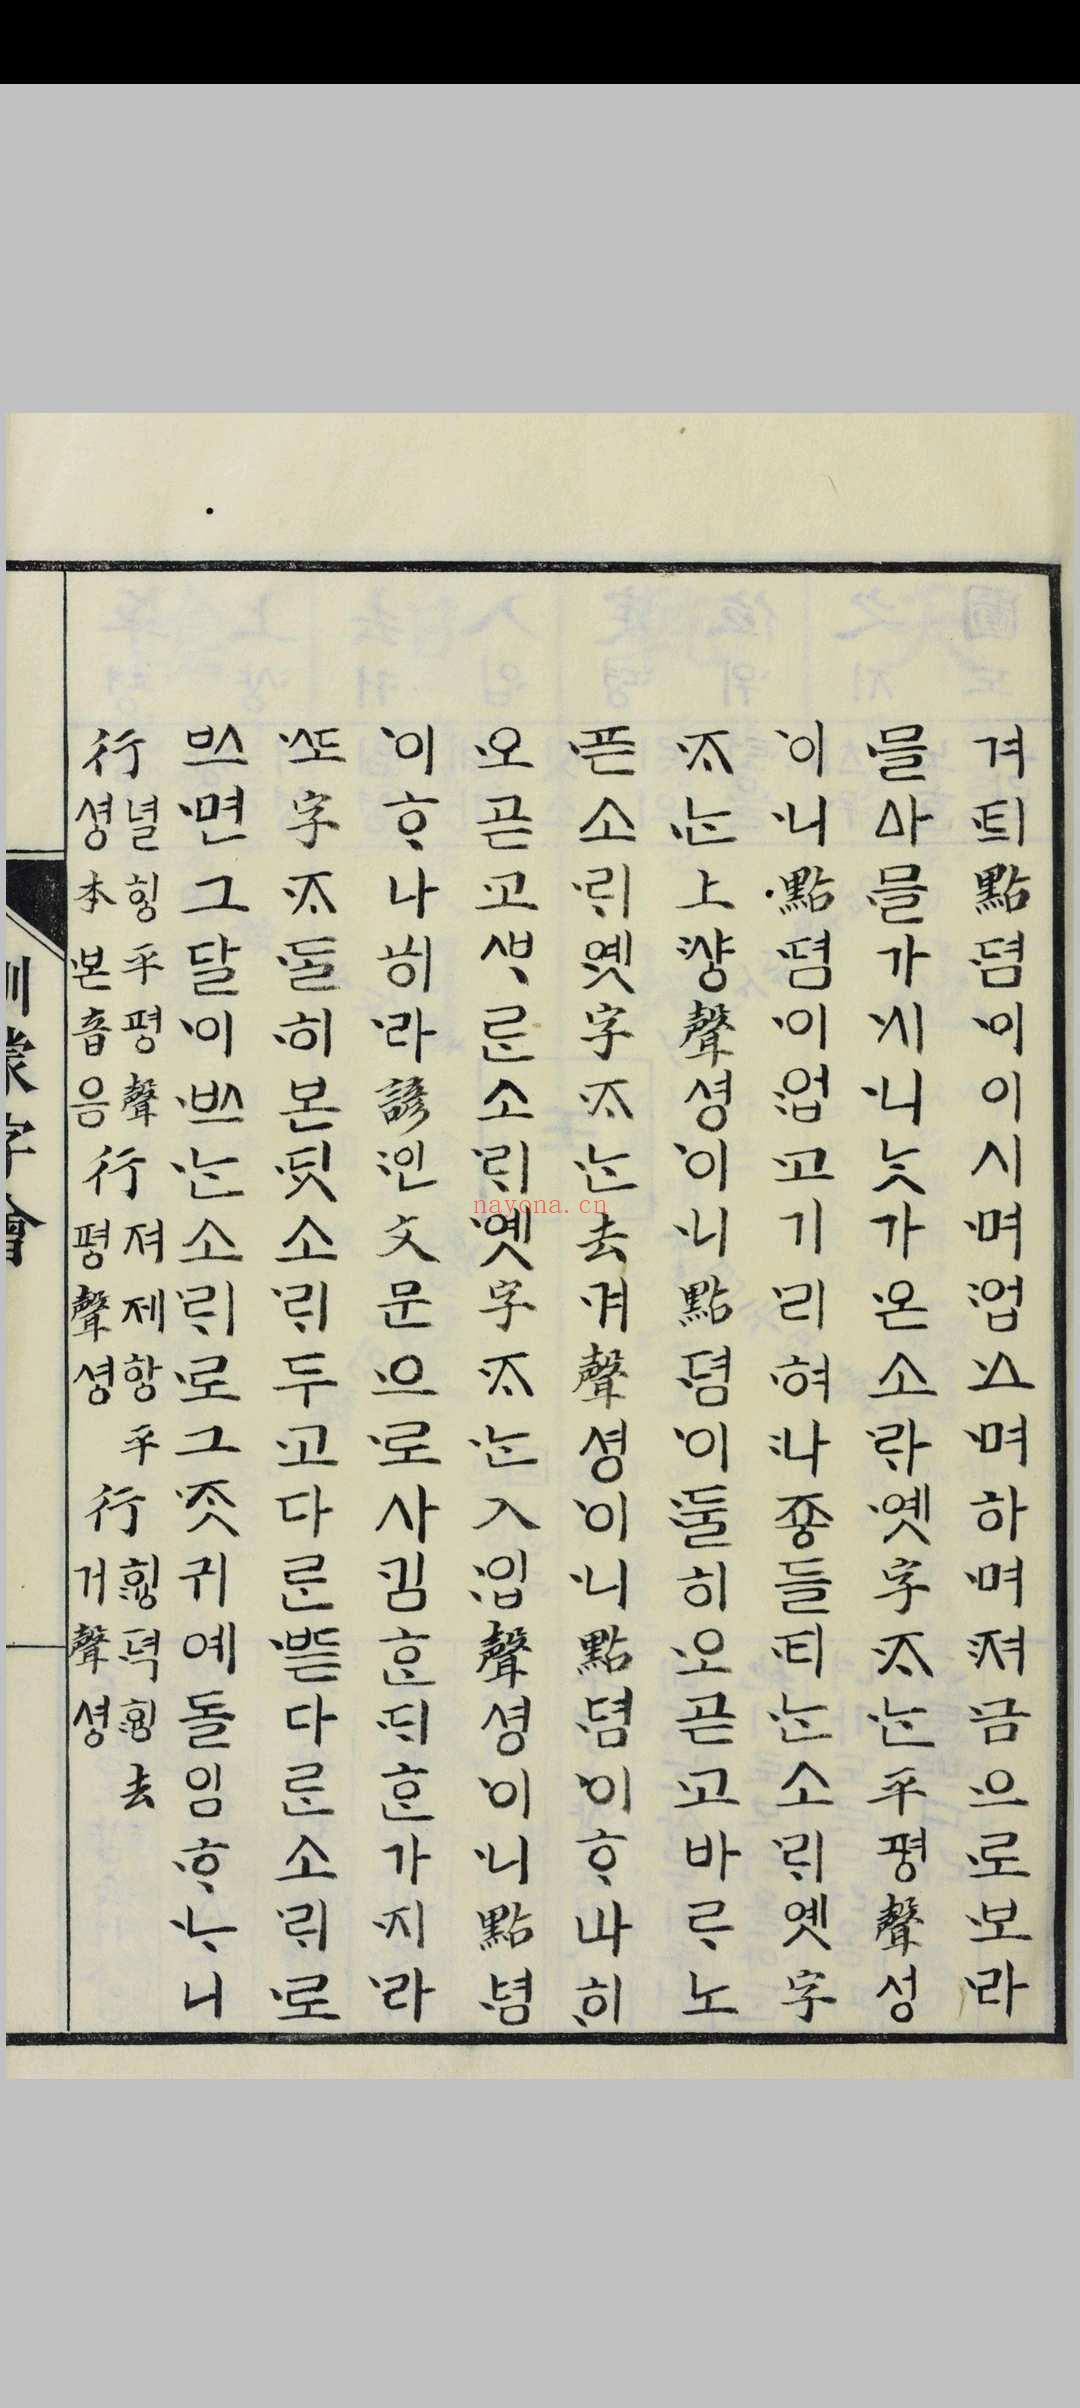 겨틔點뎜이이시며업스며하며져금으로보라
믈ᅀᅡ믈가시니ᄂᆞᆺ가온소ᄅᆡ옛字ᄌᆞᄂᆞᆫ平평聲성
이니點뎜이업고기리혀나죵들티ᄂᆞᆫ소ᄅᆡ옛字
ᄌᆞᄂᆞᆫ上샹聲셩이니點뎜이둘히오곧고바ᄅᆞ노
픈소ᄅᆡ옛字ᄌᆞᄂᆞᆫ去거聲셩이니點뎜이ᄒᆞ나히
오곧고ᄲᆞᄅᆞᆫ소ᄅᆡ옛字ᄌᆞᄂᆞᆫ入입聲셩이니點뎜
이ᄒᆞ나히라諺언文문으로사김ᄒᆞᆫᄃᆡᄒᆞᆫ가지라
ᄯᅩ字ᄌᆞᄃᆞᆯ히본ᄃᆡᆺ소ᄅᆡ두고다ᄅᆞᆫᄠᅳᆮ다ᄅᆞᆫ소ᄅᆡ로
ᄡᅳ면그달이ᄡᅳᄂᆞᆫ소ᄅᆡ로그ᄌᆞᆺ귀예돌임ᄒᆞᄂᆞ니
行녈힝平평聲셩本본音음行져제항平평聲셩行ᄒᆡᇰ뎍ᄒᆡᇰ去거聲셩
訓蒙字會
nayona.cn